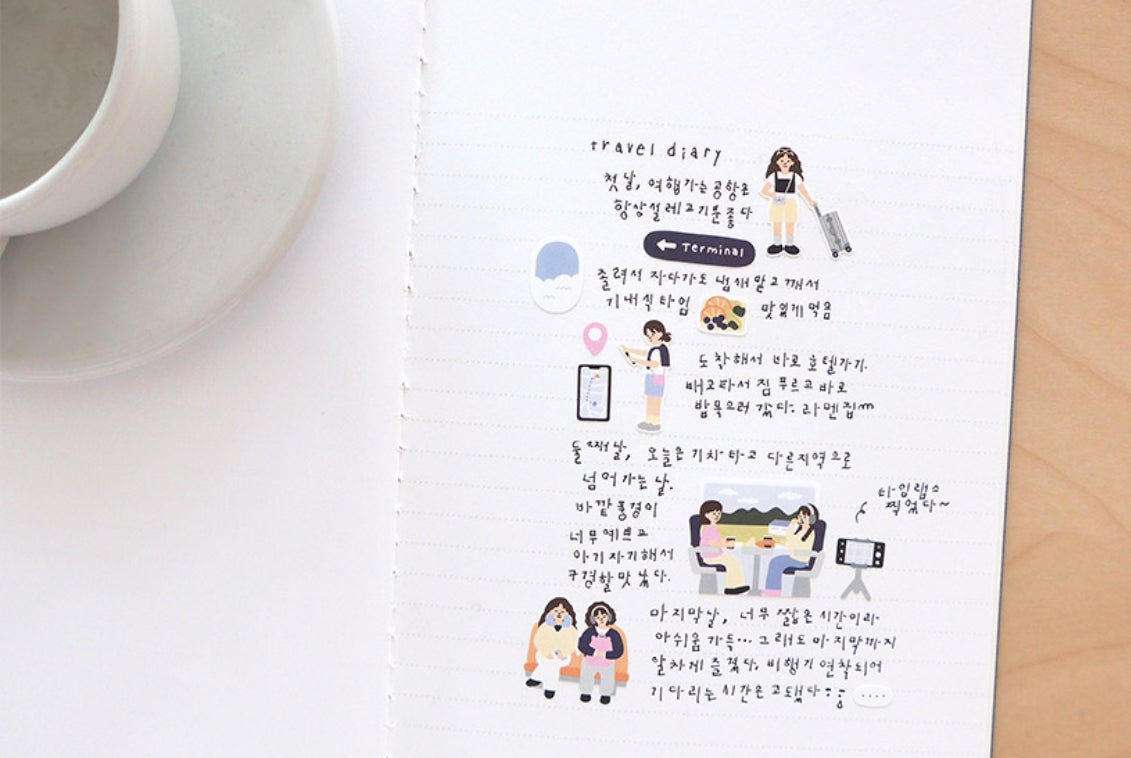 travel diary
첫날, 여행가는 공항은
항상 설레고 기분 좋다
← Terminal
졸려서 자다가도 냄새 맡고 깨서
기내식 타임 맛있게 먹음
도착해서 바로 호텔가기.
배고파서 짐 푸르고 바로
밥 먹으러 갔다: 라멘집m
둘째날, 오늘은 기차 타고 다른지역으로
넘어가는 날.
바깥 풍경이
너무 예쁘고
아기자기해서
구경할 맛 났다.
타임랩스
찍었다~
마지막날, 너무 짧은 시간이라
아쉬움 가득... 그래도 마지막까지
알차게 즐겼다. 비행기 연착되어
기다리는 시간은 고됐다
....